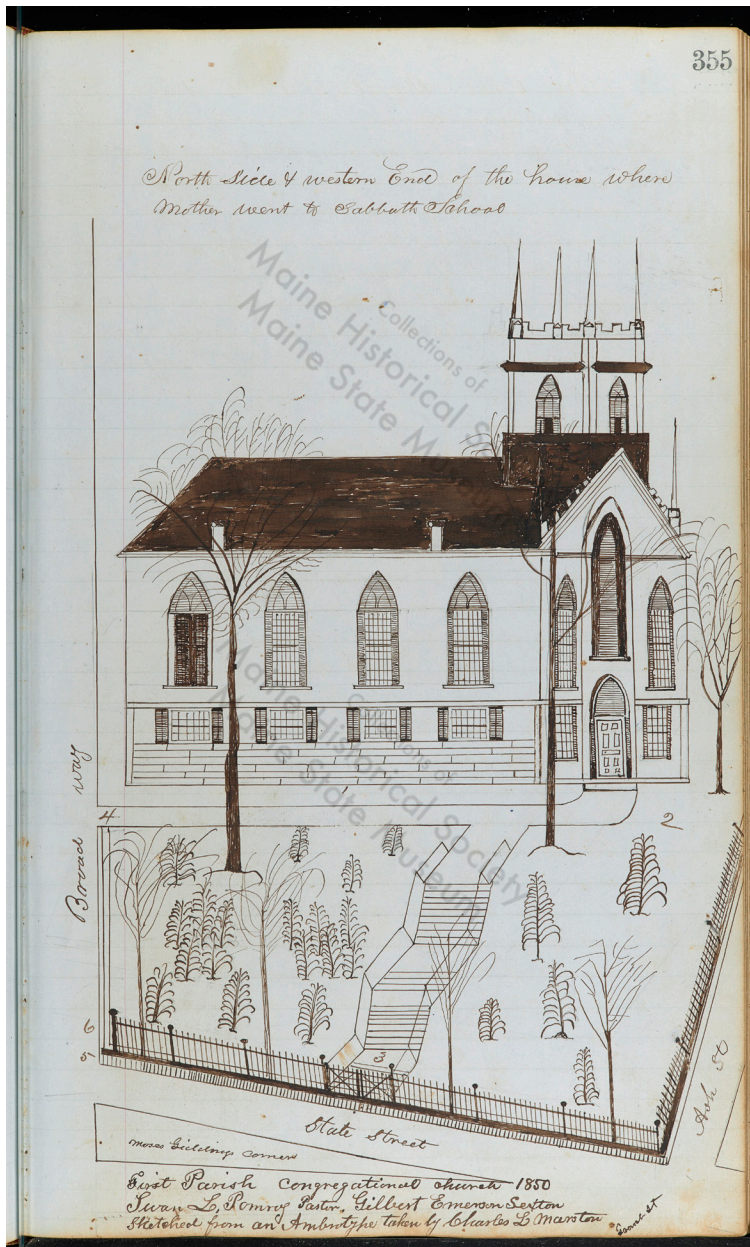 355
North Side & western End of the house where
Mother went to Sabbath School
Collections of
Maine Historical Society
Maine State Museum
Collections of
Maine Historical Society
Maine State Museum
Broad way
1
4
2
6
5
3
State Street
Ash St
Moses Giddings corner
First Parish Congregational church 1850
Swan L, Pomroy Pastor, Gilbert Emerson Sexton
Sketched from an Ambrotype taken by Charles L Marston